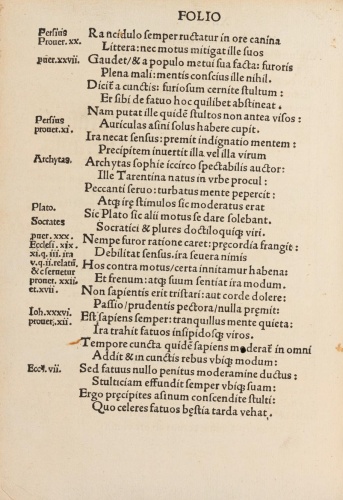 FOLIO
Persius Rancidulo semper ructatur in ore canina
Prouer. xx. Littera: nec motus mitigat ille suos
puer. xxvii. Gaudet/& a populo metui sua facta: furoris
Plena mali: mentis conscius ille nihil.
Dicit᷑ a cunctis: furiosum cernite stultum:
Et sibi de fatuo hoc quilibet abstineat.
Nam putat ille quidē stultos non antea visos:
Persius Auriculas asini solus habere cupit.
prouer. xi. Ira necat sensus: premit indignatio mentem:
Precipitem inuertit illa vel illa virum
Archytas. Archytas sophie iccirco spectabilis auctor:
Ille Tarentina natus in vrbe procul:
Peccanti seruo: turbatus mente pepercit:
Atq; irę stimulos sic moderatus erat
Plato. Sic Plato sic alii motus se dare solebant.
Socrates Socratici & plures doctiloquiq; viri.
puer. xxx.
Ecclesi. xix. Nempe furor ratione caret: pręcordia frangit:
xi. q. iii. ira Debilitat sensus. ira seuera nimis
v. q. ii. relatū. Hos contra motus/certa innitamur habena:
& seruetur Et frenum: atq; suum sentiat ira modum.
prouer. xxii.
et. xvii. Non sapientis erit tristari: aut corde dolere:
Passio/prudentis pectora/nulla pręmit:
Ioh. xxxvi. Est sapiens semper: tranquillus mente quieta:
prouer. xii. Ira trahit fatuos insipidosq; viros.
Tempore cuncta quidē sapiens moderat᷑ in omni
Addit & in cunctis rebus vbiq; modum:
Eccl. vii. Sed fatuus nullo penitus moderamine ductus:
Stulticiam effundit semper vbiq; suam:
Ergo pręcipites asinum conscendite stulti:
Quo celeres fatuos bęstia tarda vehat.